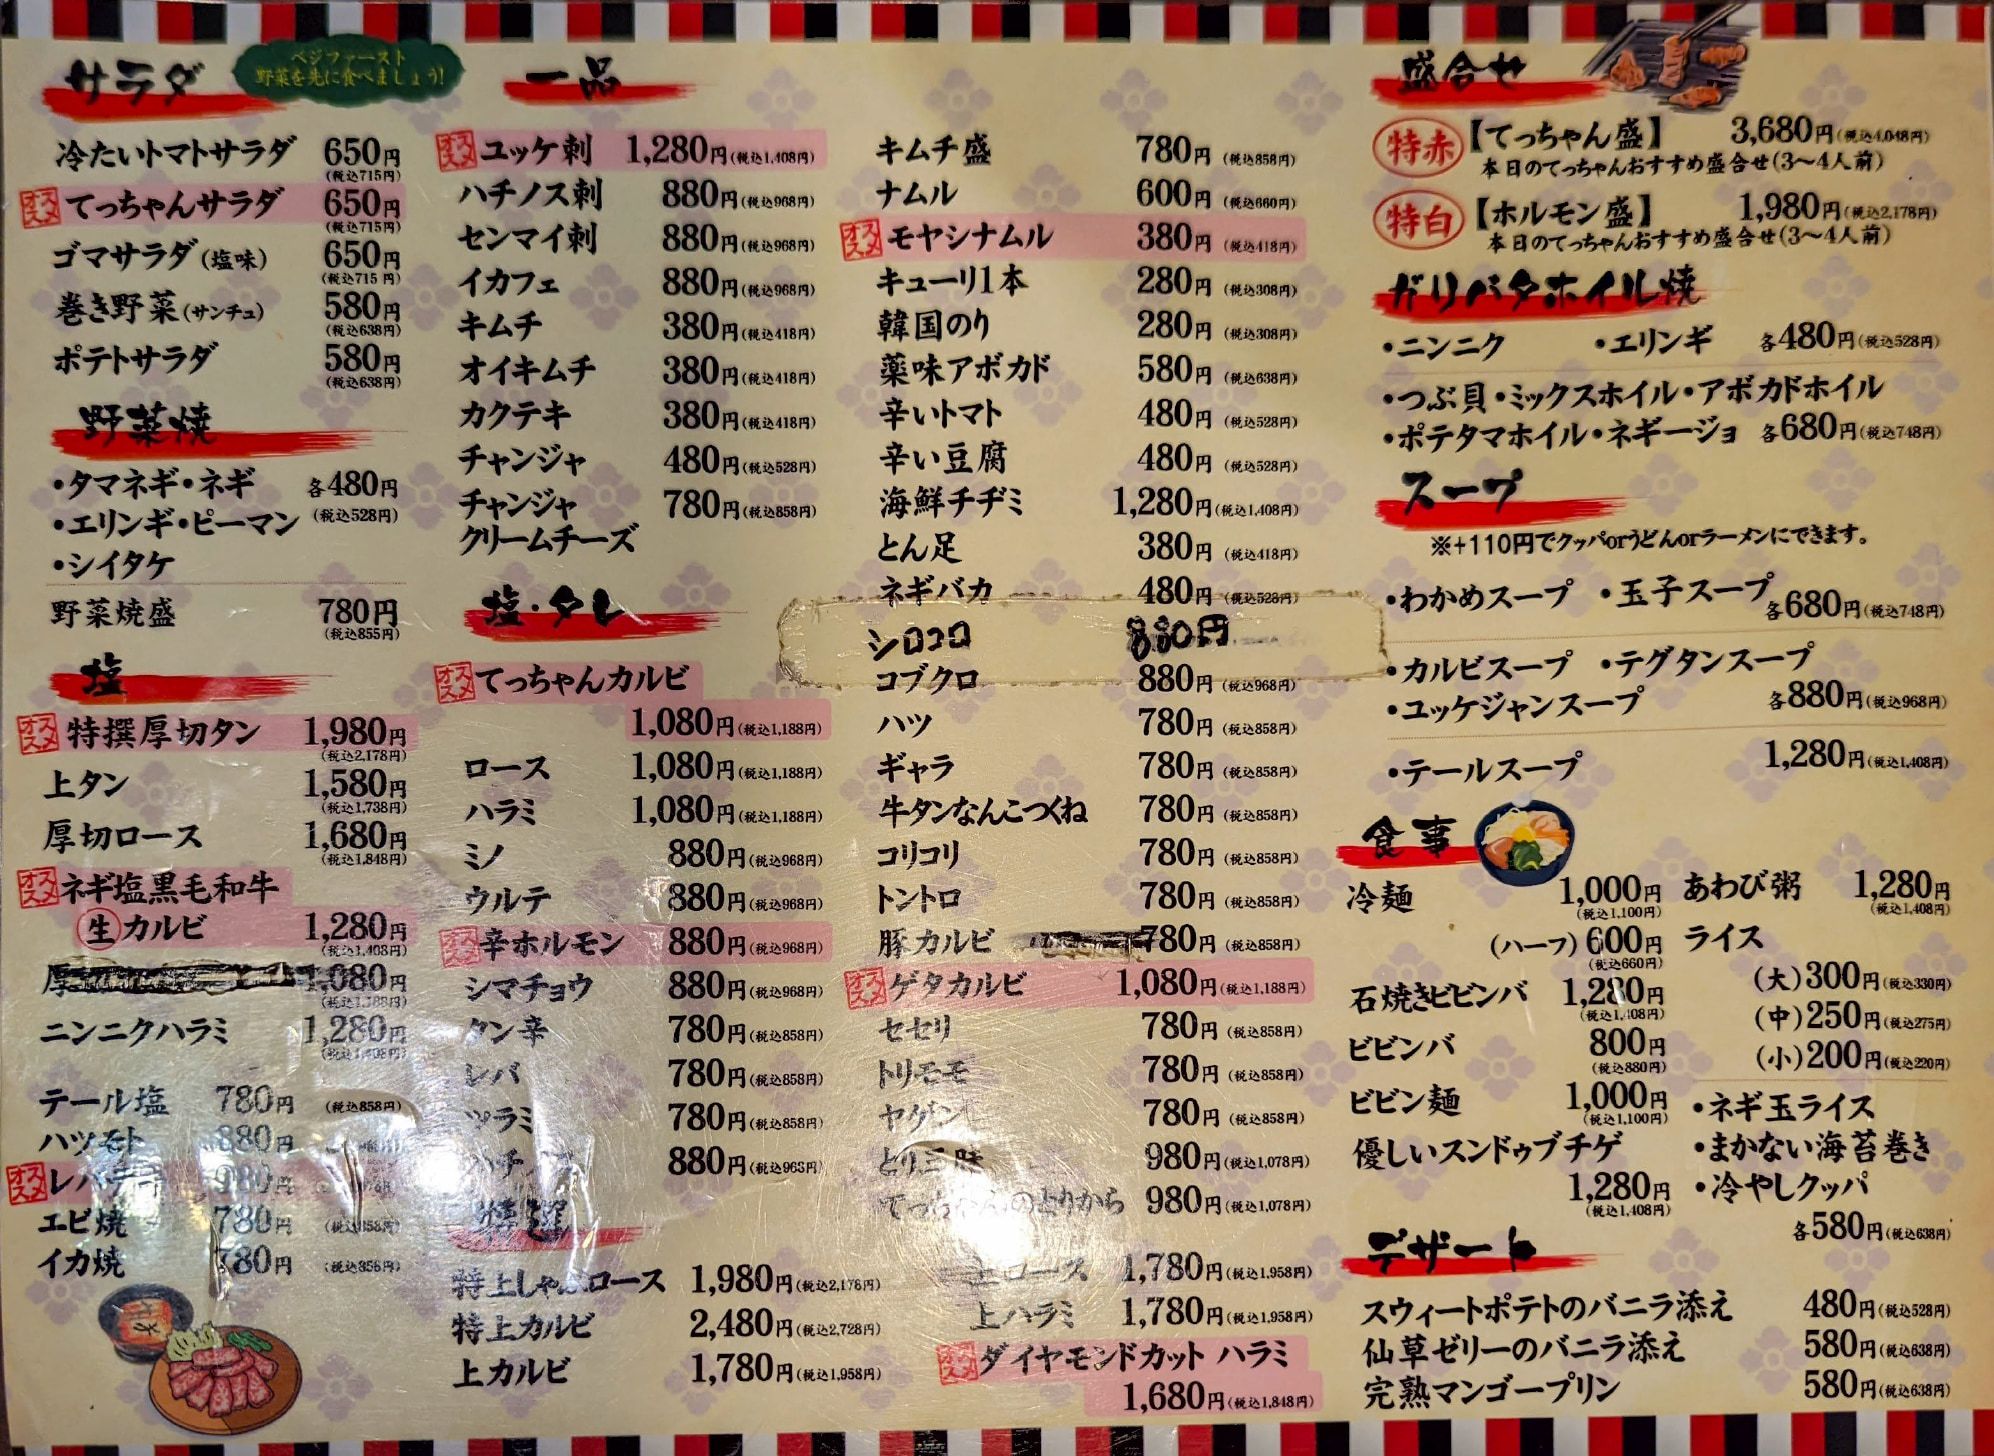 サラダ
ベジファースト
野菜を先に食べましょう!
冷たいトマトサラダ 650円
(税込715円)
オススメ てっちゃんサラダ 650円
(税込715円)
ゴマサラダ(塩味) 650円
(税込715円)
巻き野菜(サンチュ) 580円
(税込638円)
ポテトサラダ 580円
(税込638円)
野菜焼
・タマネギ・ネギ 各480円
・エリンギ・ピーマン (税込528円)
・シイタケ
野菜焼盛 780円
(税込855円)
塩
オススメ 特撰厚切タン 1,980円
(税込2,178円)
上タン 1,580円
(税込1,738円)
厚切ロース 1,680円
(税込1,848円)
オススメ ネギ塩黒毛和牛
生カルビ 1,280円
(税込1,408円)
厚切 1,080円
(税込1,188円)
ニンニクハラミ 1,280円
(税込1,408円)
テール塩 780円 (税込858円)
ハツモト 880円
オススメ レバテキ 980円
エビ焼 780円 (税込858円)
イカ焼 780円 (税込858円)
一品
オススメ ユッケ刺 1,280円(税込1,408円)
ハチノス刺 880円(税込968円)
センマイ刺 880円(税込968円)
イカフェ 880円(税込968円)
キムチ 380円(税込418円)
オイキムチ 380円(税込418円)
カクテキ 380円(税込418円)
チャンジャ 480円(税込528円)
チャンジャ 780円(税込858円)
クリームチーズ
塩・タレ
オススメ てっちゃんカルビ
1,080円(税込1,188円)
ロース 1,080円(税込1,188円)
ハラミ 1,080円(税込1,188円)
ミノ 880円(税込968円)
ウルテ 880円(税込968円)
オススメ 辛ホルモン 880円(税込968円)
シマチョウ 880円(税込968円)
タン辛 780円(税込858円)
レバ 780円(税込858円)
ツラミ 780円(税込858円)
ハチノス 880円(税込968円)
特選
特上しゃぶロース 1,980円(税込2,178円)
特上カルビ 2,480円(税込2,728円)
上カルビ 1,780円(税込1,958円)
キムチ盛 780円(税込858円)
ナムル 600円(税込660円)
オススメ モヤシナムル 380円(税込418円)
キューリ1本 280円(税込308円)
韓国のり 280円(税込308円)
薬味アボカド 580円(税込638円)
辛いトマト 480円(税込528円)
辛い豆腐 480円(税込528円)
海鮮チヂミ 1,280円(税込1,408円)
とん足 380円(税込418円)
ネギバカ 480円(税込528円)
シロコロ 880円
コブクロ 880円(税込968円)
ハツ 780円(税込858円)
ギャラ 780円(税込858円)
牛タンなんこつくね 780円(税込858円)
コリコリ 780円(税込858円)
トントロ 780円(税込858円)
豚カルビ 780円(税込858円)
オススメ ゲタカルビ 1,080円(税込1,188円)
セセリ 780円(税込858円)
トリモモ 780円(税込858円)
ヤゲン 780円(税込858円)
とり三昧 980円(税込1,078円)
てっちゃんのとりから 980円(税込1,078円)
上ロース 1,780円(税込1,958円)
上ハラミ 1,780円(税込1,958円)
オススメ ダイヤモンドカット ハラミ
1,680円(税込1,848円)
盛合せ
特赤【てっちゃん盛】 3,680円(税込4,048円)
本日のてっちゃんおすすめ盛合せ(3〜4人前)
特白【ホルモン盛】 1,980円(税込2,178円)
本日のてっちゃんおすすめ盛合せ(3〜4人前)
ガリバタホイル焼
・ニンニク ・エリンギ 各480円(税込528円)
・つぶ貝・ミックスホイル・アボカドホイル
・ポテタマホイル・ネギージョ 各680円(税込748円)
スープ
※+110円でクッパorうどんorラーメンにできます。
・わかめスープ ・玉子スープ 各680円(税込748円)
・カルビスープ ・テグタンスープ
・ユッケジャンスープ 各880円(税込968円)
・テールスープ 1,280円(税込1,408円)
食事
冷麺 1,000円
(税込1,100円)
(ハーフ)600円
(税込660円)
石焼きビビンバ 1,280円
(税込1,408円)
ビビンバ 800円
(税込880円)
ビビン麺 1,000円
(税込1,100円)
優しいスンドゥブチゲ
1,280円
(税込1,408円)
あわび粥 1,280円
(税込1,408円)
ライス
(大)300円(税込330円)
(中)250円(税込275円)
(小)200円(税込220円)
・ネギ玉ライス
・まかない海苔巻き
・冷やしクッパ
各580円(税込638円)
デザート
スウィートポテトのバニラ添え 480円(税込528円)
仙草ゼリーのバニラ添え 580円(税込638円)
完熟マンゴープリン 580円(税込638円)